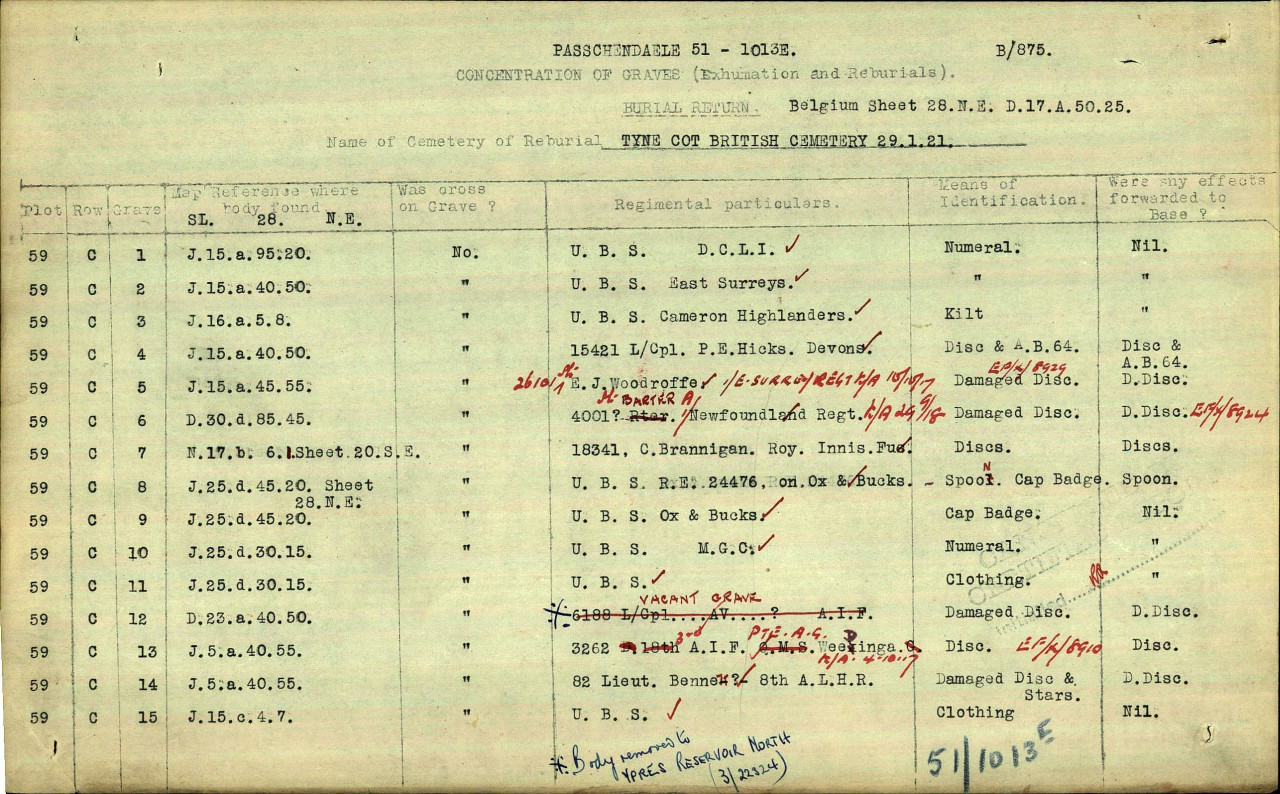 PASSCHENDAELE 51 - 1013E. B/875.
CONCENTRATION OF GRAVES (Exhumation and Reburials).
BURIAL RETURN. Belgium Sheet 28.N.E. D.17.A.50.25.
Name of Cemetery of Reburial TYNE COT BRITISH CEMETERY 29.1.21.
Plot Row Grave Map Reference where body found SL. 28. N.E. Was cross on Grave ? Regimental particulars. Means of Identification. Were any effects forwarded to Base ?
59 C 1 J.15.a.95.20. No. U. B. S. D.C.L.I. ✓ Numeral. Nil.
59 C 2 J.15.a.40.50. " U. B. S. East Surreys. ✓ " "
59 C 3 J.16.a.5.8. " U. B. S. Cameron Highlanders. ✓ Kilt "
59 C 4 J.15.a.40.50. " 15421 L/Cpl. P.E.Hicks. Devons. ✓ Disc & A.B.64. Disc & A.B.64.
59 C 5 J.15.a.45.55. " 26101 E.J.Woodroffe ✓ 1/E.SURREY REGT K/A 10/10/17 Damaged Disc. EF/K/8929 D.Disc.
59 C 6 D.30.d.85.45. " 4001? Rter. BARTER A 1/Newfoundland Regt. K/A 29/9/18 Damaged Disc. D.Disc. EF/K/8924
59 C 7 N.17.b. 6.1.Sheet 20.S.E. " 18341, C.Brannigan. Roy. Innis.Fus. ✓ Discs. Discs.
59 C 8 J.25.d.45.20. Sheet 28.N.E. " U. B. S. R.E. 24476, on.Ox & Bucks. ✓ - Spoon. Cap Badge. Spoon.
59 C 9 J.25.d.45.20. " U. B. S. Ox & Bucks. ✓ Cap Badge. Nil.
59 C 10 J.25.d.30.15. " U. B. S. M.G.C. ✓ Numeral. "
59 C 11 J.25.d.30.15. " U. B. S. ✓ Clothing. "
VACANT GRAVE
59 C 12 D.23.a.40.50. " 6188 L/Cpl....AV....? A.I.F. Damaged Disc. D.Disc.
59 C 13 J.5.a.40.55. " 3262 18th 3rd A.I.F. PTE. A.G. O.M.S. Weekinga.G. D K/A. 4-10-17 Disc. EF/K/8910 Disc.
59 C 14 J.5.a.40.55. " 82 Lieut. Bennet?- 8th A.L.H.R. ✓ Damaged Disc & Stars. D.Disc.
59 C 15 J.15.c.4.7. " U. B. S. ✓ Clothing Nil.
Body removed to
YPRES RESERVOIR NORTH
(3/22324)
51/1013E